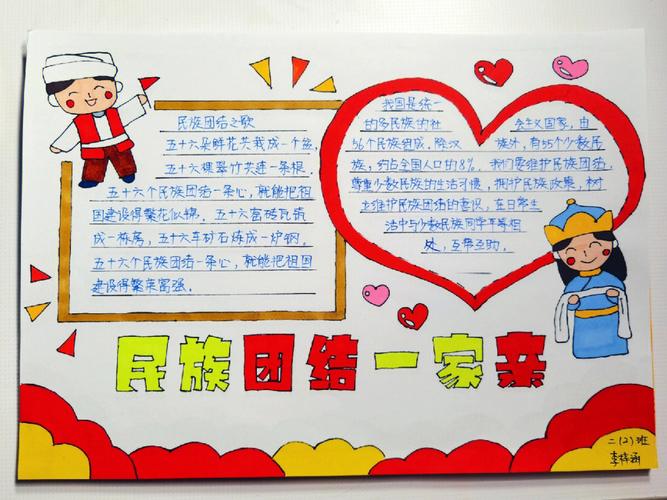 民族团结之歌
五十六朵鲜花共栽成一个盆,
五十六棵翠竹共连一条根.
五十六个民族团结一条心,就能把祖
国建设得繁花似锦. 五十六窑砖瓦筑
成一栋房,五十六车矿石炼成一炉钢.
五十六个民族团结一条心,就能把祖国
建设得繁荣富强.
我国是统一
的多民族的社 会主义国家,由
56个民族组成.除汉 族外,有55个少数民
族,约占全国人口的8%. 我们要维护民族团结,
尊重少数民族的生活习惯,拥护民族政策,树
立维护民族团结的意识,在日常生
活中与少数民族同学平等相
处,互帮互助.
民族团结一家亲
二(2)班
李梓涵